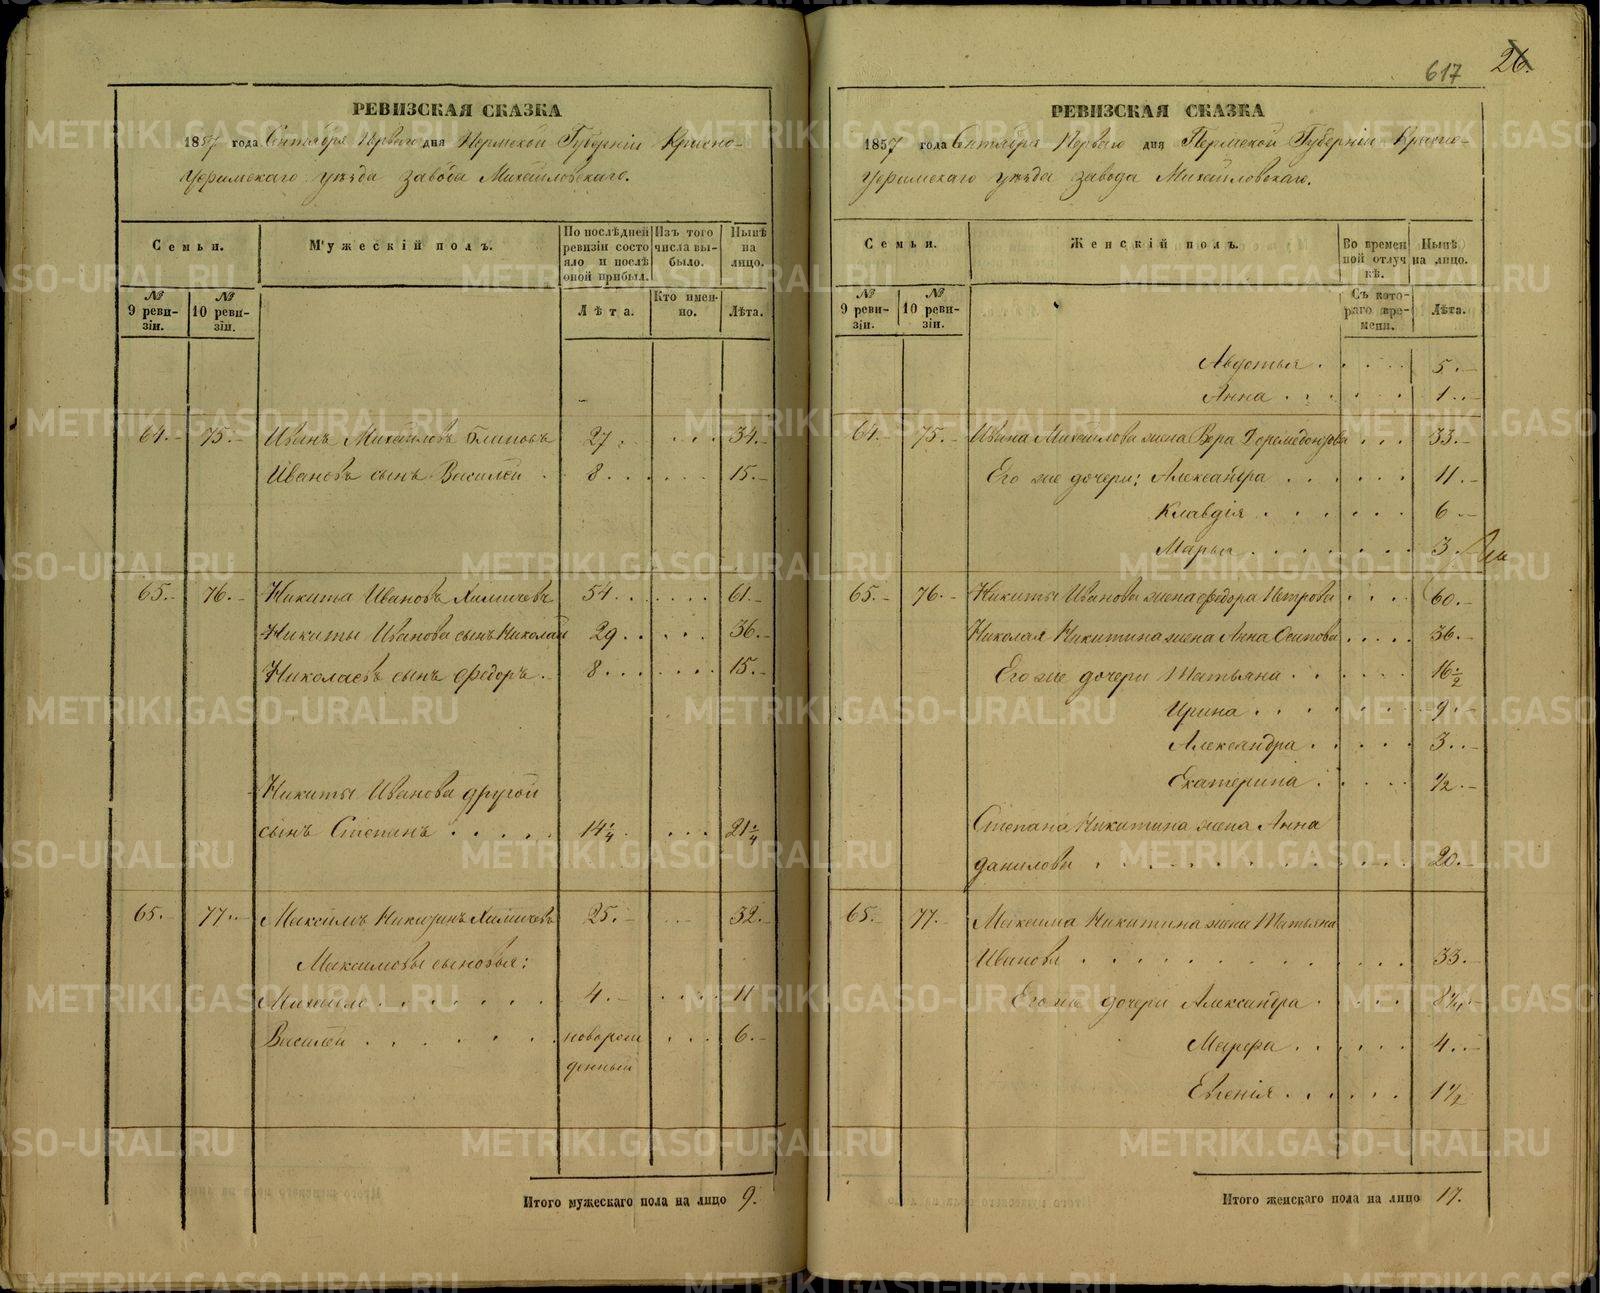 617 26.
РЕВИЗСКАЯ СКАЗКА
1857 года Сентября Перваго дня Пермской Губерніи Красно-
уфимскаго уѣзда завода Михайловскаго.
Семьи. Мужескій полъ. По послѣдней ревизіи состояло и послѣ оной прибыл. Изъ того числа выбыло. Нынѣ на лицо.
№ 9 ревизіи. № 10 ревизіи. Лѣта. Кто именно. Лѣта.
64. 75. Иванъ Михайловъ Блиновъ 27. 34.
Ивановъ сынъ Василей 8. 15.
65. 76. Никита Ивановъ Химичевъ 54. 61.
Никиты Иванова сынъ Николай 29. 36.
Николаевъ сынъ Федоръ. 8. 15.
Никиты Иванова другой
сынъ Степанъ 14 1/4. 21 1/4
65. 77. Максимъ Никитинъ Химичевъ 25. 32.
Максимовы сыновья:
Михайло 4. 11
Василей новорож 6.
денный
Итого мужескаго пола на лицо 9.
РЕВИЗСКАЯ СКАЗКА
1857 года Сентября Перваго дня Пермской Губерніи Красно-
уфимскаго уѣзда завода Михайловскаго.
Семьи. Женскій полъ. Во временной отлучкѣ. Нынѣ на лицо.
№ 9 ревизіи. № 10 ревизіи. Съ котораго времени. Лѣта.
Авдотья 5.
Анна 1.
64. 75. Ивана Михайлова жена Вера 33.
Его же дочери: Александра 11.
Клавдія 6
Марья 3.
65. 76. Никиты Иванова жена Федора Петрова 60.
Николая Никитина жена Анна Осипова 36.
Его же дочери Татьяна 16 1/2
Ирина 9.
Александра 3.
Екатерина 1/2
Степана Никитина жена Анна
Данилова 20.
65. 77. Максима Никитина жена Татьяна
Иванова 33.
Его же дочери Александра 8 1/4
Марфа 4.
Евгенія 1 1/2
Итого женскаго пола на лицо 17.
METRIKI.GASO-URAL.RU